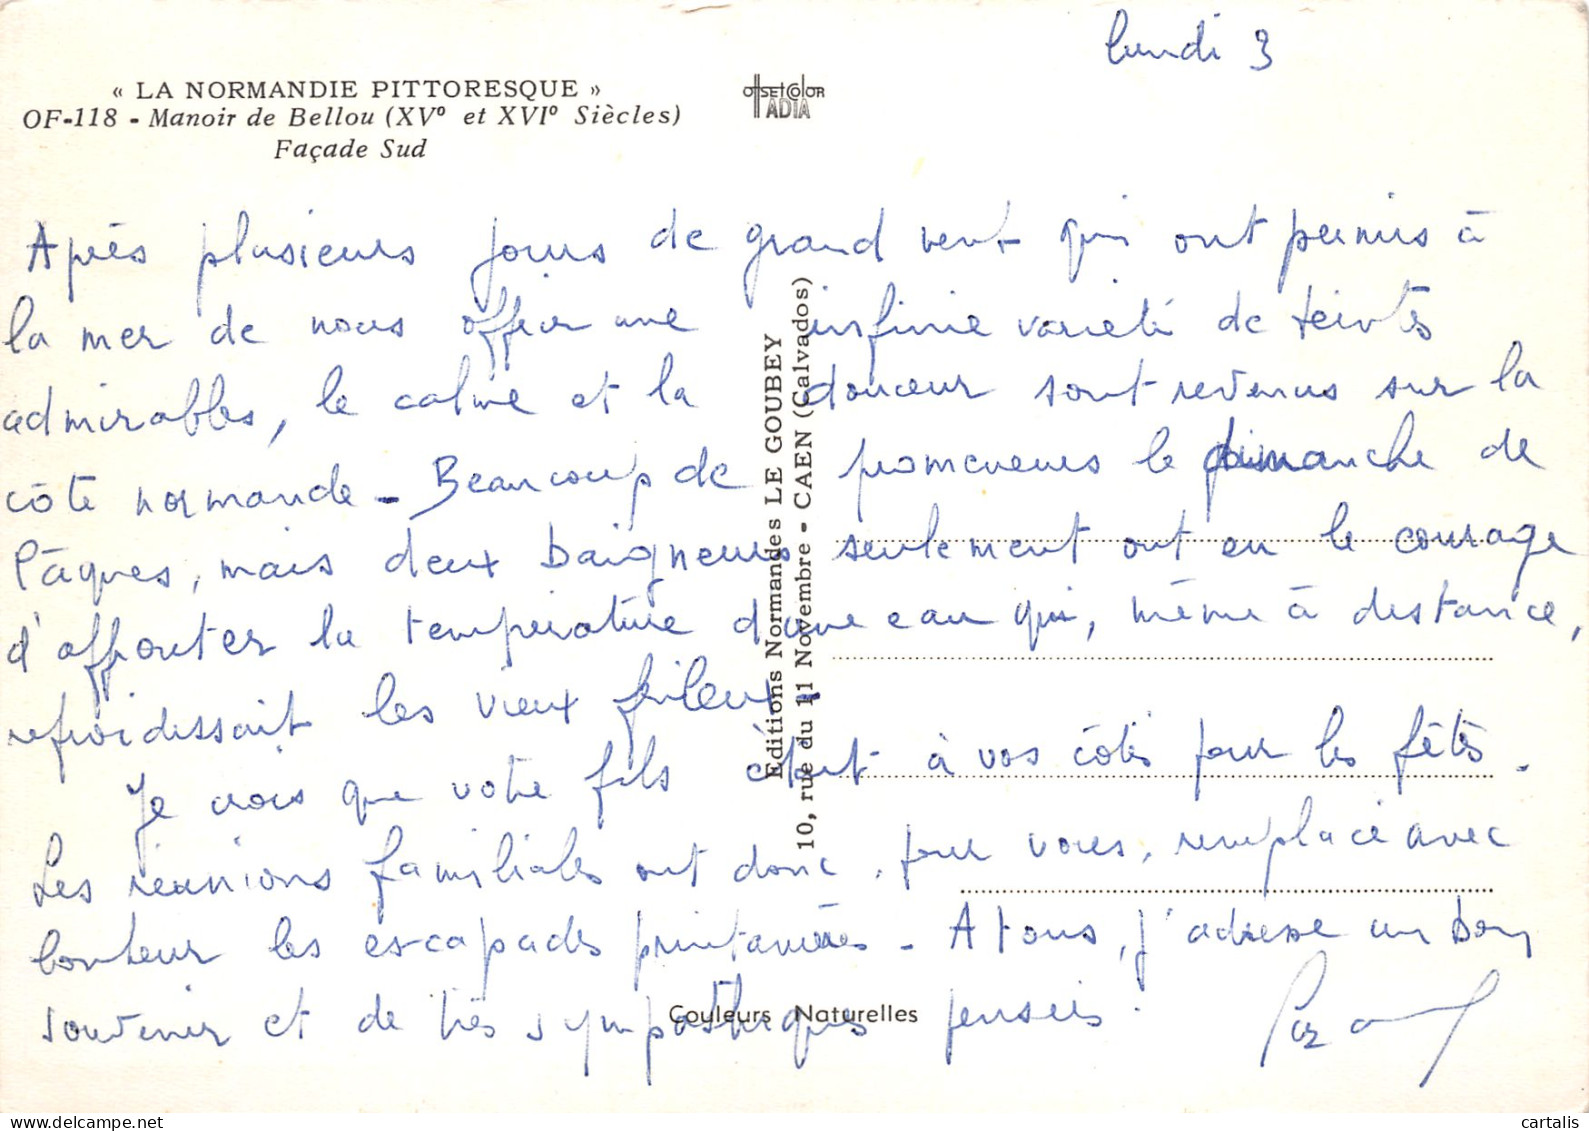 lundi 3
« LA NORMANDIE PITTORESQUE »
OF-118 - Manoir de Bellou (XVº et XVIº Siècles)
Façade Sud
OffsetColor
IADIA
Après plusieurs jours de grand vent qui ont permis à
la mer de nous offrir une infinie variété de teintes
admirables, le calme et la douceur sont revenus sur la
côte normande - Beaucoup de promeneurs le dimanche de
Pâques, mais deux baigneurs seulement ont eu le courage
d'affronter la température d'une eau qui, même à distance,
refroidissait les vieux frileux -
Je crois que votre fils était à vos côtés pour les fêtes.
Les réunions familiales ont donc, pour vous, remplacé avec
bonheur les escapades printanières - A tous, j'adresse un bon
souvenir et de très sympathiques pensées.
Editions Normandes LE GOUBEY
10, rue du 11 Novembre - CAEN (Calvados)
Couleurs Naturelles
delcampe.net
cartalis